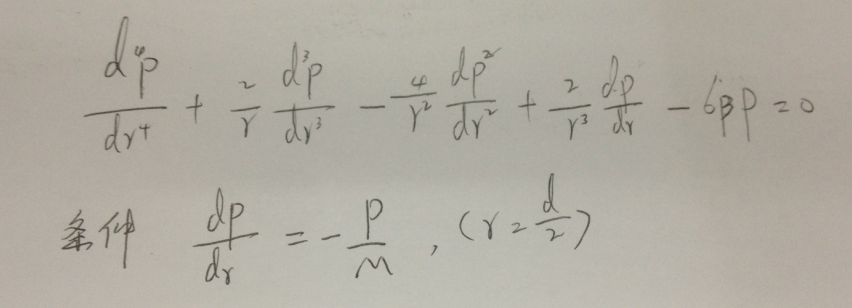 d⁴p/dr⁴ + 2/r d³p/dr³ - 4/r² dp²/dr² + 2/r³ dp/dr - 6βp = 0
条件 dp/dr = - p/M , (r = d/2)